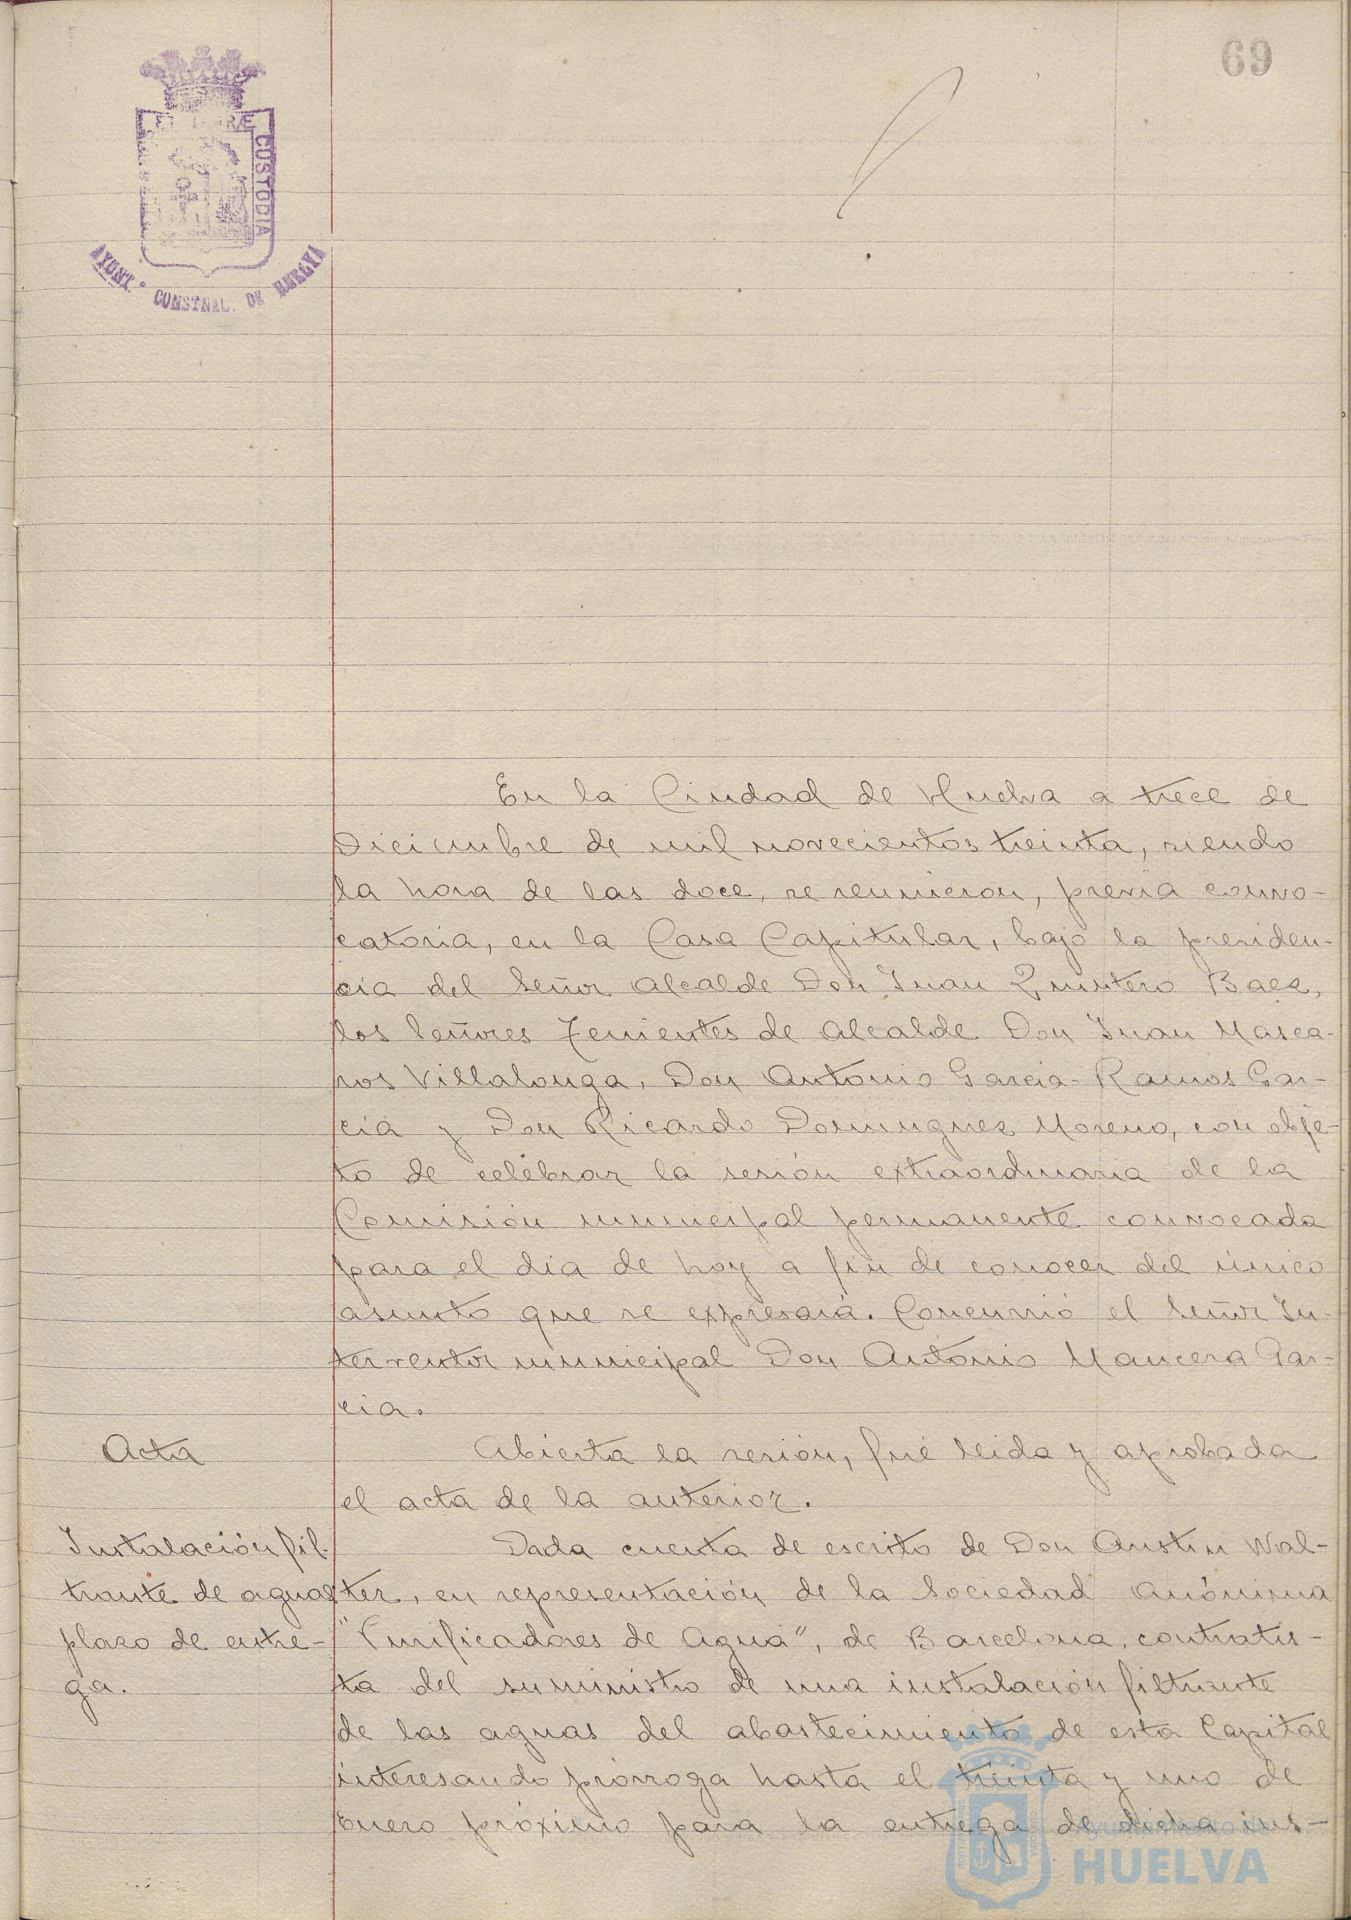 69
CUSTODIA
AYONT. CONSTNAL. DE HUELVA
En la Ciudad de Huelva a trece de
Diciembre de mil novecientos treinta, siendo
la hora de las doce, se reunieron, previa convo-
catoria, en la Casa Capitular, bajo la presiden-
cia del Señor Alcalde Don Juan Quintero Baez,
los Señores Tenientes de Alcalde Don Juan Masca-
ros Villalonga, Don Antonio Garcia-Ramos Gar-
cia y Don Ricardo Dominguez Moreno, con obje-
to de celebrar la sesión extraordinaria de la
Comisión municipal permanente convocada
para el dia de hoy a fin de conocer del único
asunto que se expresará. Concurrió el Señor In-
terventor municipal Don Antonio Mancera Gar-
cia.
Acta
Abierta la sesión, fué leida y aprobada
el acta de la anterior.
Instalación fil-
trante de aguas
plazo de entre-
ga.
Dada cuenta de escrito de Don Austin Wal-
ter, en representación de la Sociedad Anónima
"Purificadores de Agua", de Barcelona, contratis-
ta del suministro de una instalación filtrante
de las aguas del abastecimiento de esta Capital
interesando prórroga hasta el treinta y uno de
Enero próximo para la entrega de dicha ins-
Ayuntamiento de
HUELVA